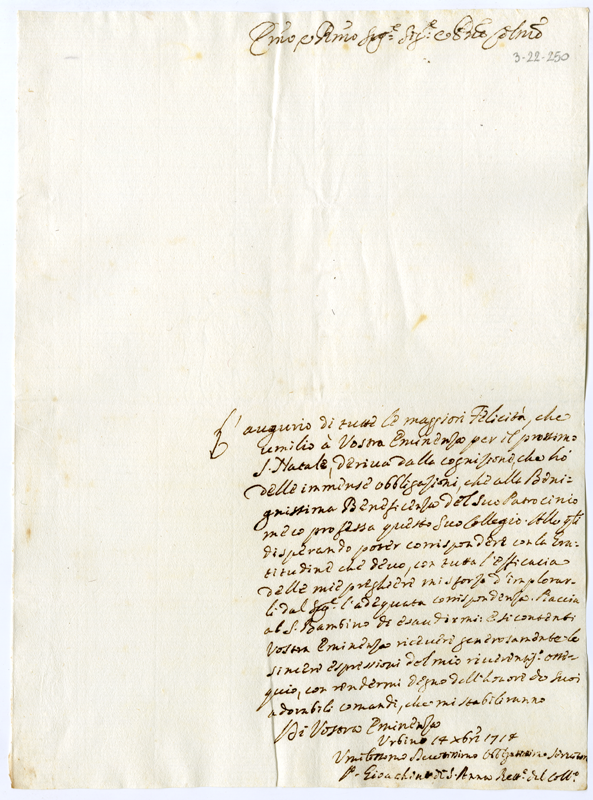 Emo e Rmo Sigre Sigre e Prõn Colmo
3-22-250
L'augurio di tutte le maggiori Felicità, che
umilio à Vostra Eminenza per il prossimo
S. Natale, deriva dalla cognizione, che hò
delle immense obbligazioni, che alla Beni-
gnissima Beneficenza del Suo Patrocinio
meco professa questo Suo Collegio. Alle qli
disperando poter corrispondere con la Gra-
titudine che devo, con tutta l'efficacia
delle mie preghiere mi sforzo d'implorar-
li dal Sigre l'adequata corrispondenza. Piaccia
al S. Bambino di esaudirmi: e si contenti
Vostra Eminenza ricevere generosamente le
sincere espressioni del mio riverentismo osse-
quio, con rendermi degno dell'honore de suoi
adorabili comandi, che mi stabiliranno
Di Vostra Eminenza
Urbino 14 Xbre 1714
Umilissimo Devotissimo Obbligatissimo Servitore
Po Gioachino di S. Anna Rettre del Collo